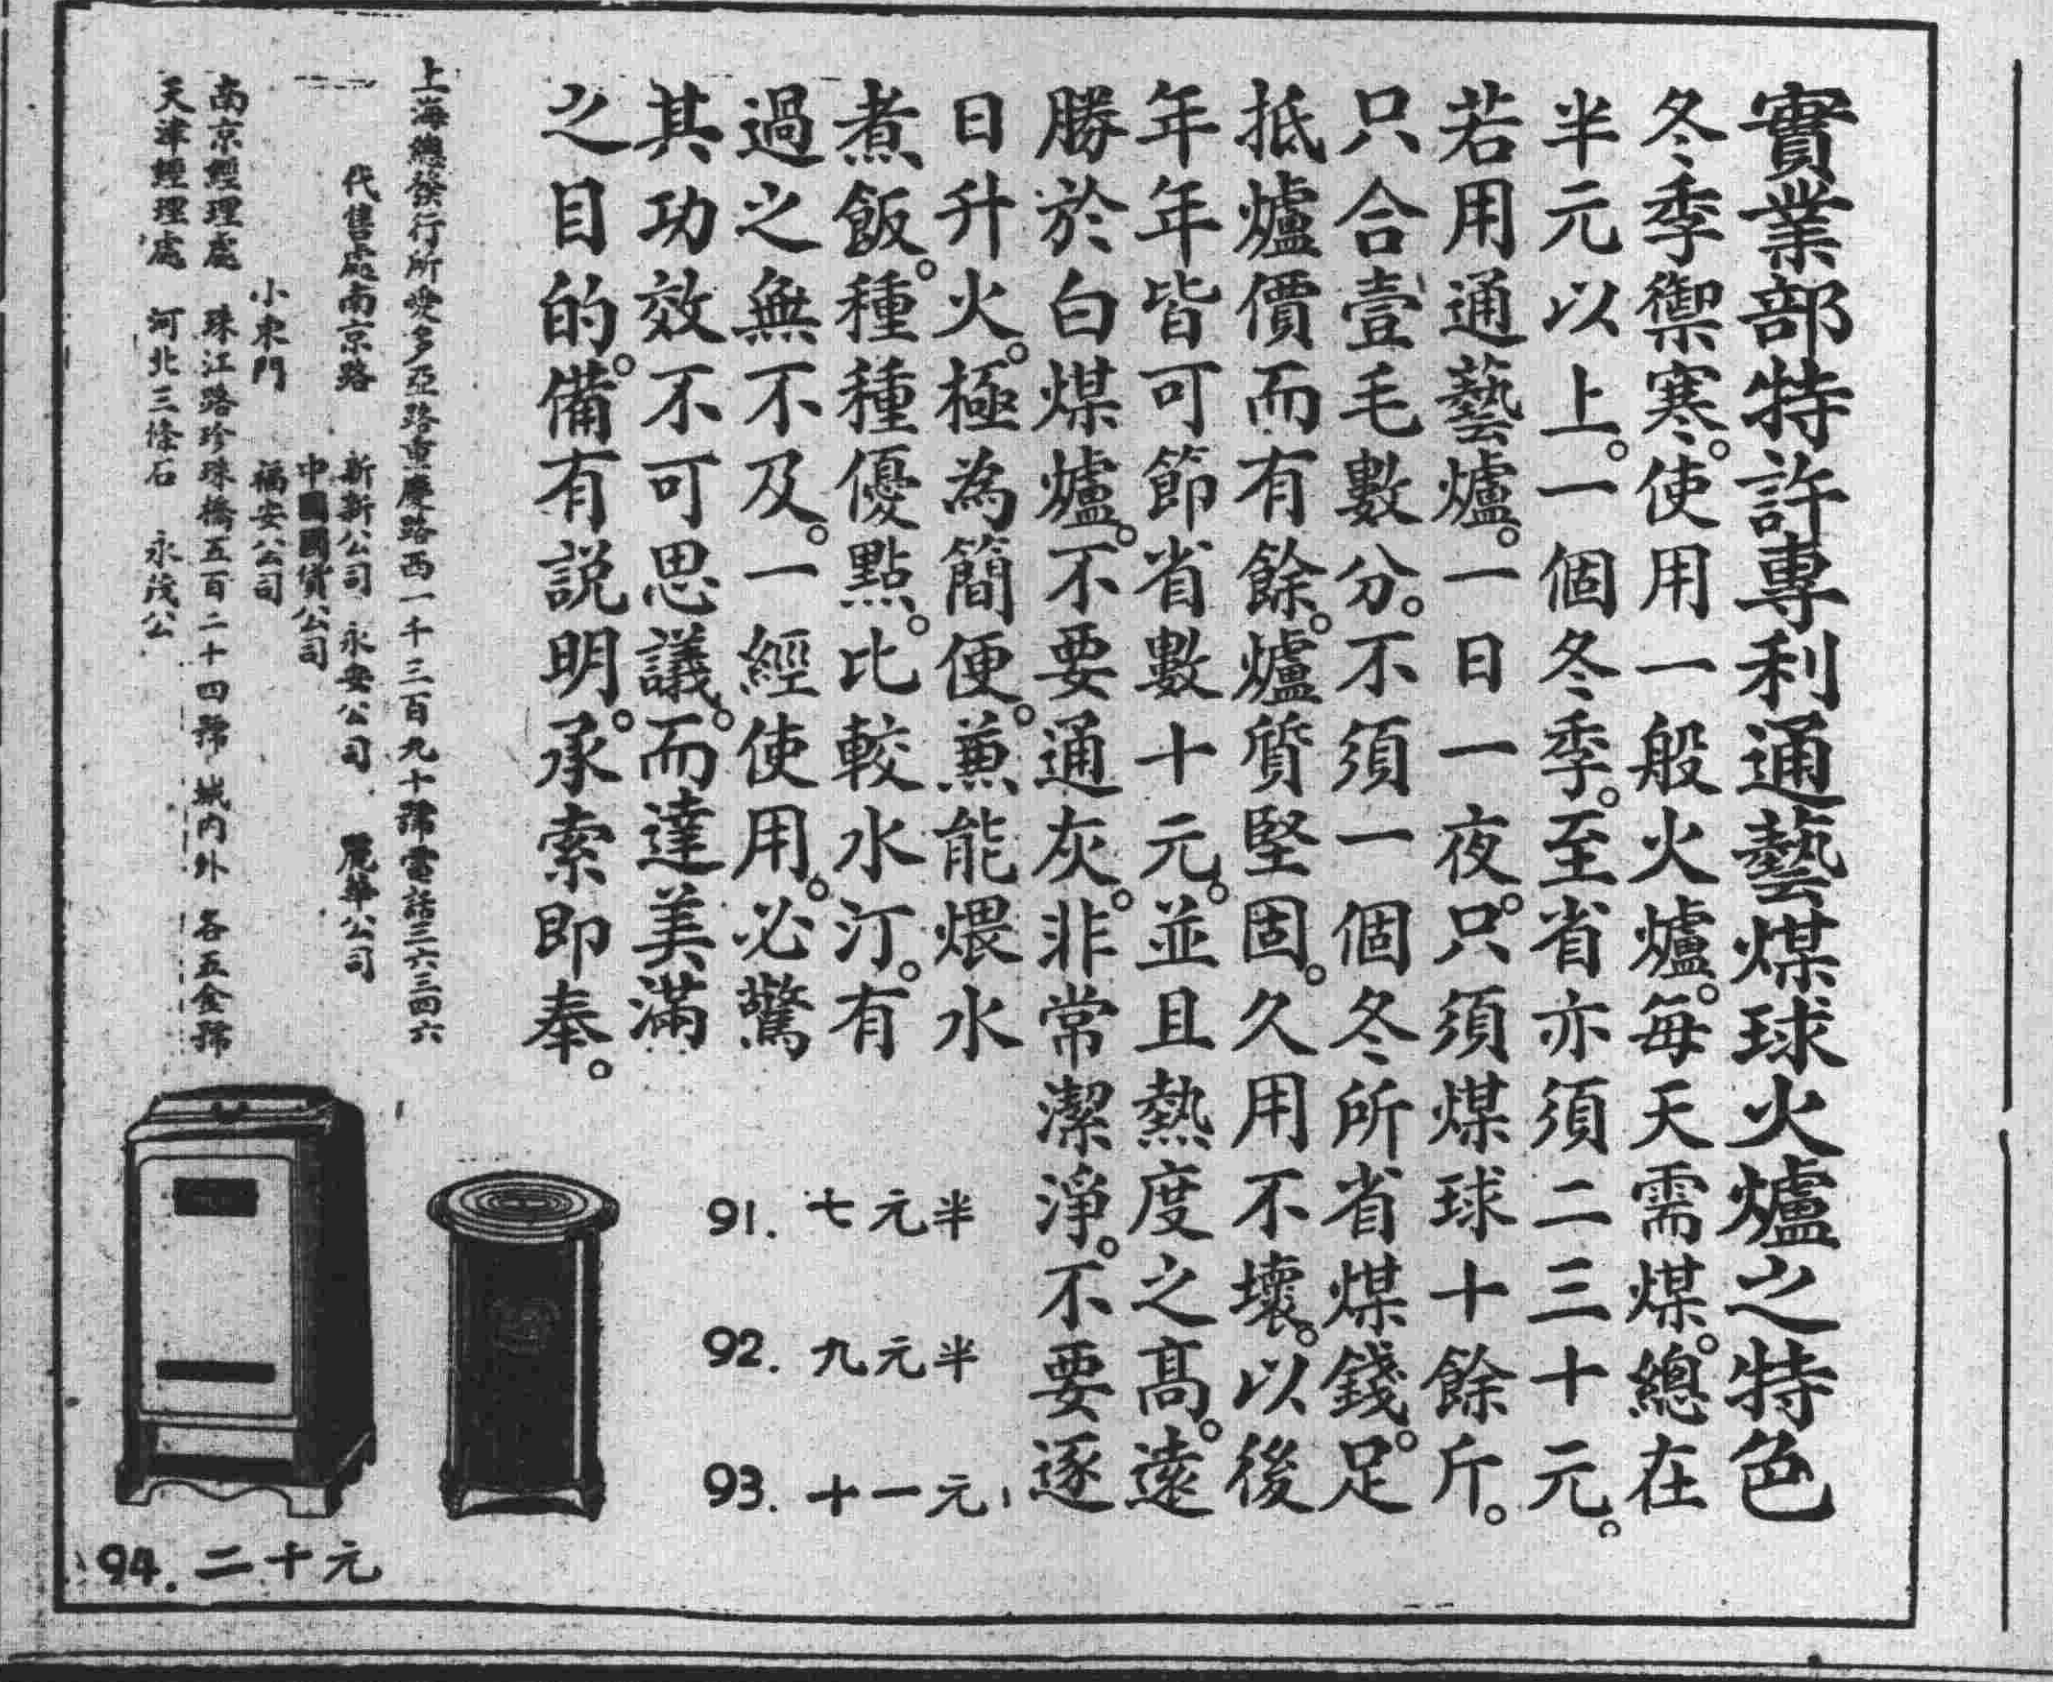 實業部特許專利通藝煤球火爐之特色
冬季禦寒。使用一般火爐。每天需煤。總在
半元以上。一個冬季。至省亦須二三十元。
若用通藝爐。一日一夜。只須煤球十餘斤。
只合壹毛數分。不須一個冬所省煤錢。足
抵爐價而有餘。爐質堅固。久用不壞。以後
年年皆可節省數十元。並且熱度之高。遠
勝於白煤爐。不要通灰。非常潔淨。不要逐
日升火。極為簡便。兼能煨水
煮飯。種種優點。比較水汀。有
過之無不及。一經使用。必驚
其功效不可思議。而達美滿
之目的。備有説明。承索即奉。
上海總發行所愛多亞路重慶路西一千三百九十號電話三六三四六
代售處南京路 新新公司 永安公司 麗華公司
中國國貨公司
小東門 福安公司
南京經理處 珠江路珍珠橋五百二十四號 城內外 各五金號
天津經理處 河北三條石 永茂公
91. 七元半
92. 九元半
93. 十一元
94. 二十元